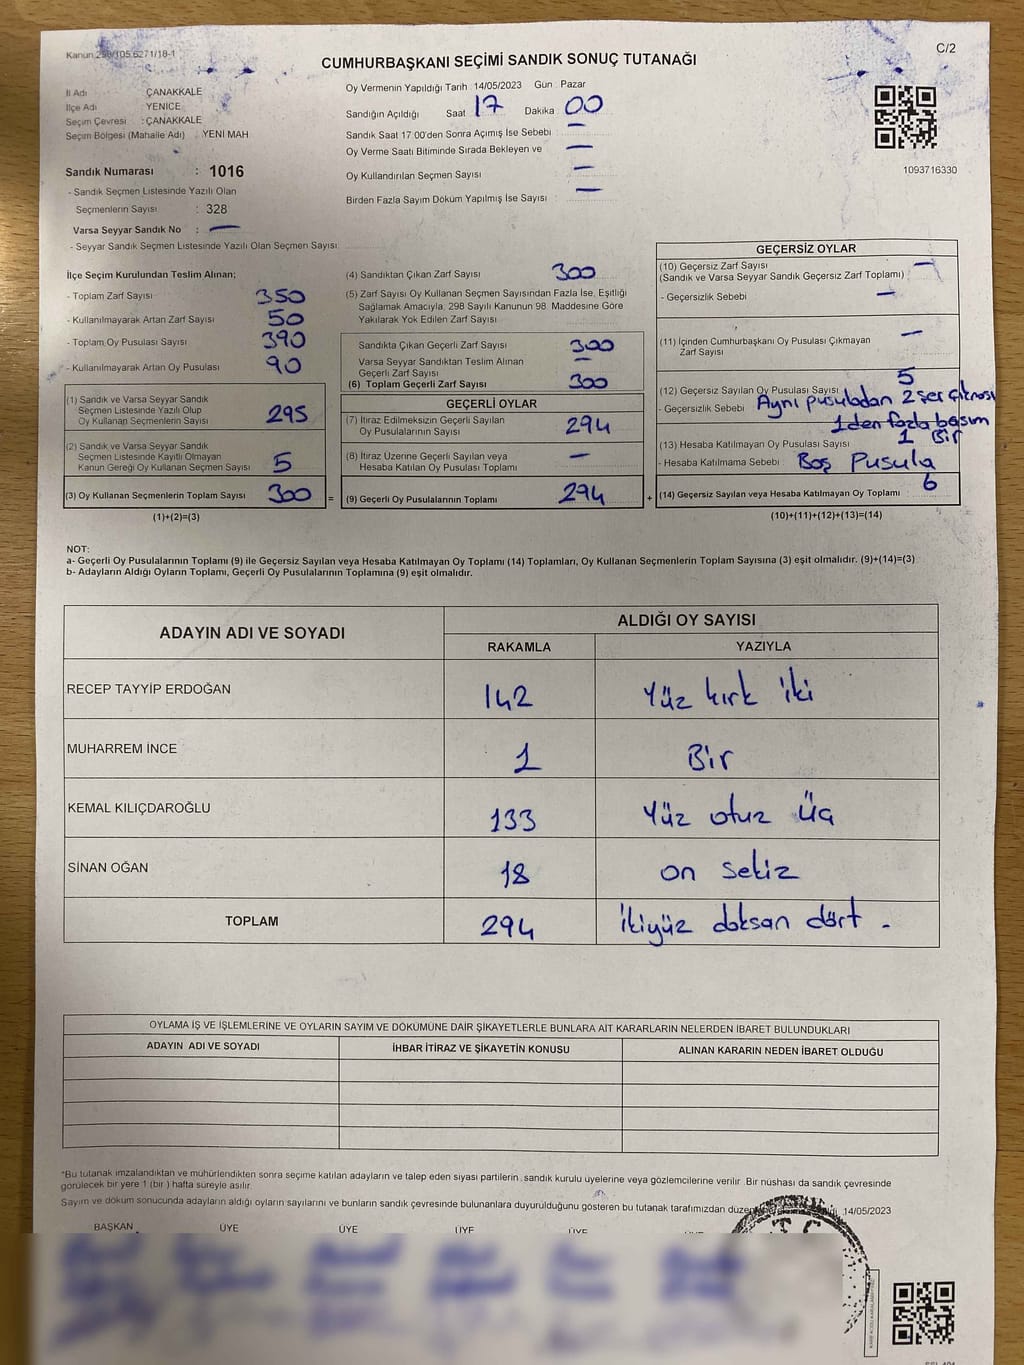 Kanun 298/105.6271/18-1
C/2
CUMHURBAŞKANI SEÇİMİ SANDIK SONUÇ TUTANAĞI
İl Adı ÇANAKKALE
İlçe Adı YENİCE
Seçim Çevresi : ÇANAKKALE
Seçim Bölgesi (Mahalle Adı) YENİ MAH
Sandık Numarası : 1016
- Sandık Seçmen Listesinde Yazılı Olan
Seçmenlerin Sayısı : 328
Varsa Seyyar Sandık No : —
- Seyyar Sandık Seçmen Listesinde Yazılı Olan Seçmen Sayısı:
Oy Vermenin Yapıldığı Tarih 14/05/2023 Gün Pazar
Sandığın Açıldığı Saat 17 Dakika 00
Sandık Saat 17:00'den Sonra Açılmış İse Sebebi —
Oy Verme Saati Bitiminde Sırada Bekleyen ve —
Oy Kullandırılan Seçmen Sayısı —
Birden Fazla Sayım Döküm Yapılmış İse Sayısı : —
1093716330
İlçe Seçim Kurulundan Teslim Alınan;
- Toplam Zarf Sayısı 350
- Kullanılmayarak Artan Zarf Sayısı 50
- Toplam Oy Pusulası Sayısı 390
- Kullanılmayarak Artan Oy Pusulası 90
(1) Sandık ve Varsa Seyyar Sandık
Seçmen Listesinde Yazılı Olup
Oy Kullanan Seçmenlerin Sayısı 295
(2) Sandık ve Varsa Seyyar Sandık
Seçmen Listesinde Kayıtlı Olmayan
Kanun Gereği Oy Kullanan Seçmen Sayısı 5
(3) Oy Kullanan Seçmenlerin Toplam Sayısı 300 =
(1)+(2)=(3)
(4) Sandıktan Çıkan Zarf Sayısı 300
(5) Zarf Sayısı Oy Kullanan Seçmen Sayısından Fazla İse, Eşitliği
Sağlamak Amacıyla, 298 Sayılı Kanunun 98. Maddesine Göre
Yakılarak Yok Edilen Zarf Sayısı
Sandıkta Çıkan Geçerli Zarf Sayısı 300
Varsa Seyyar Sandıktan Teslim Alınan
Geçerli Zarf Sayısı —
(6) Toplam Geçerli Zarf Sayısı 300
GEÇERLİ OYLAR
(7) İtiraz Edilmeksizin Geçerli Sayılan
Oy Pusulalarının Sayısı 294
(8) İtiraz Üzerine Geçerli Sayılan veya
Hesaba Katılan Oy Pusulası Toplamı —
(9) Geçerli Oy Pusulalarının Toplamı 294 +
GEÇERSİZ OYLAR
(10) Geçersiz Zarf Sayısı —
(Sandık ve Varsa Seyyar Sandık Geçersiz Zarf Toplamı)
- Geçersizlik Sebebi —
(11) İçinden Cumhurbaşkanı Oy Pusulası Çıkmayan —
Zarf Sayısı
(12) Geçersiz Sayılan Oy Pusulası Sayısı 5
- Geçersizlik Sebebi Aynı pusuladan 2şer çıkması
1den fazla basım
(13) Hesaba Katılmayan Oy Pusulası Sayısı 1 Bir
- Hesaba Katılmama Sebebi Boş Pusula
(14) Geçersiz Sayılan veya Hesaba Katılmayan Oy Toplamı 6
(10)+(11)+(12)+(13)=(14)
NOT:
a- Geçerli Oy Pusulalarının Toplamı (9) ile Geçersiz Sayılan veya Hesaba Katılmayan Oy Toplamı (14) Toplamları, Oy Kullanan Seçmenlerin Toplam Sayısına (3) eşit olmalıdır. (9)+(14)=(3)
b- Adayların Aldığı Oyların Toplamı, Geçerli Oy Pusulalarının Toplamına (9) eşit olmalıdır.
ADAYIN ADI VE SOYADI
ALDIĞI OY SAYISI
RAKAMLA YAZIYLA
RECEP TAYYİP ERDOĞAN 142 Yüz kırk iki
MUHARREM İNCE 1 Bir
KEMAL KILIÇDAROĞLU 133 Yüz otuz üç
SİNAN OĞAN 18 on sekiz
TOPLAM 294 İkiyüz doksan dört .
OYLAMA İŞ VE İŞLEMLERİNE VE OYLARIN SAYIM VE DÖKÜMÜNE DAİR ŞİKAYETLERLE BUNLARA AİT KARARLARIN NELERDEN İBARET BULUNDUKLARI
ADAYIN ADI VE SOYADI İHBAR İTİRAZ VE ŞİKAYETİN KONUSU ALINAN KARARIN NEDEN İBARET OLDUĞU
*Bu tutanak imzalandıktan ve mühürlendikten sonra seçime katılan adayların ve talep eden siyasi partilerin sandık kurulu üyelerine veya gözlemcilerine verilir. Bir nüshası da sandık çevresinde
görülecek bir yere 1 (bir ) hafta süreyle asılır.
Sayım ve döküm sonucunda adayların aldığı oyların sayılarını ve bunların sandık çevresinde bulunanlara duyurulduğunu gösteren bu tutanak tarafımızdan 14/05/2023
BAŞKAN ÜYE ÜYE ÜYE ÜYE
T.C.